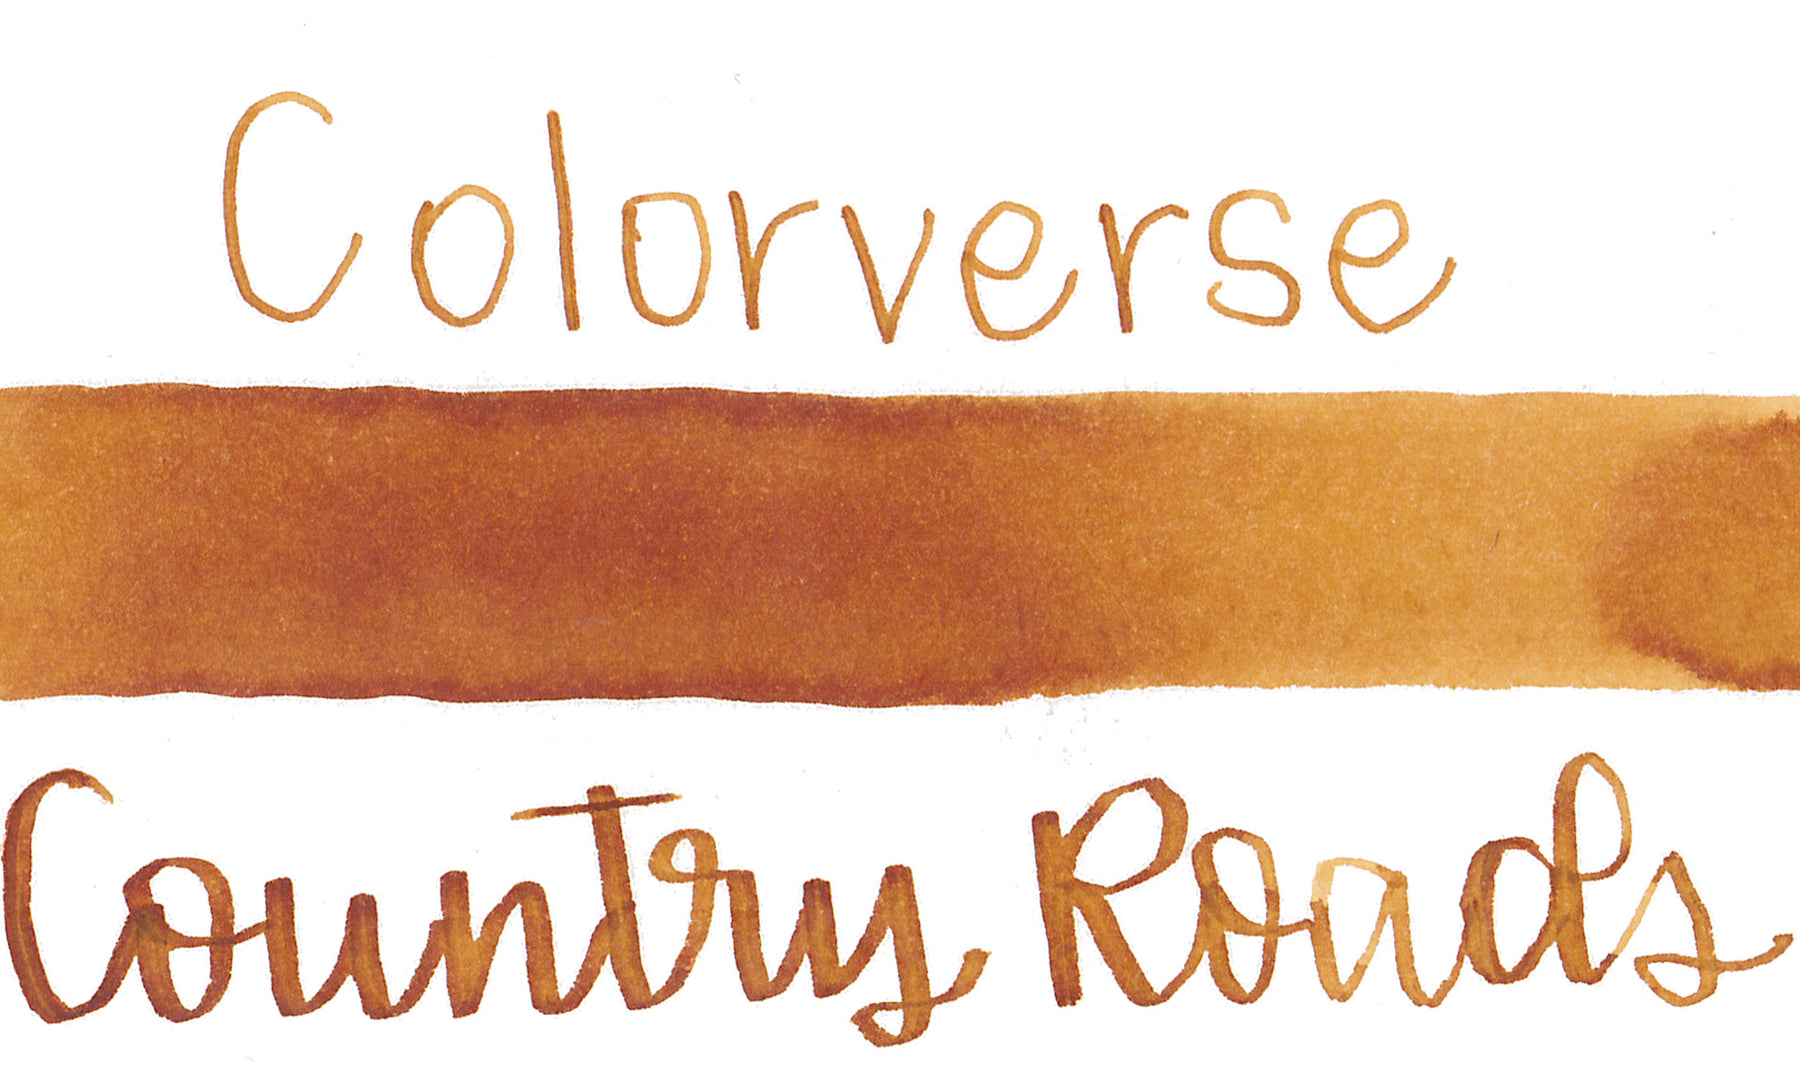 Colorverse
Country Roads